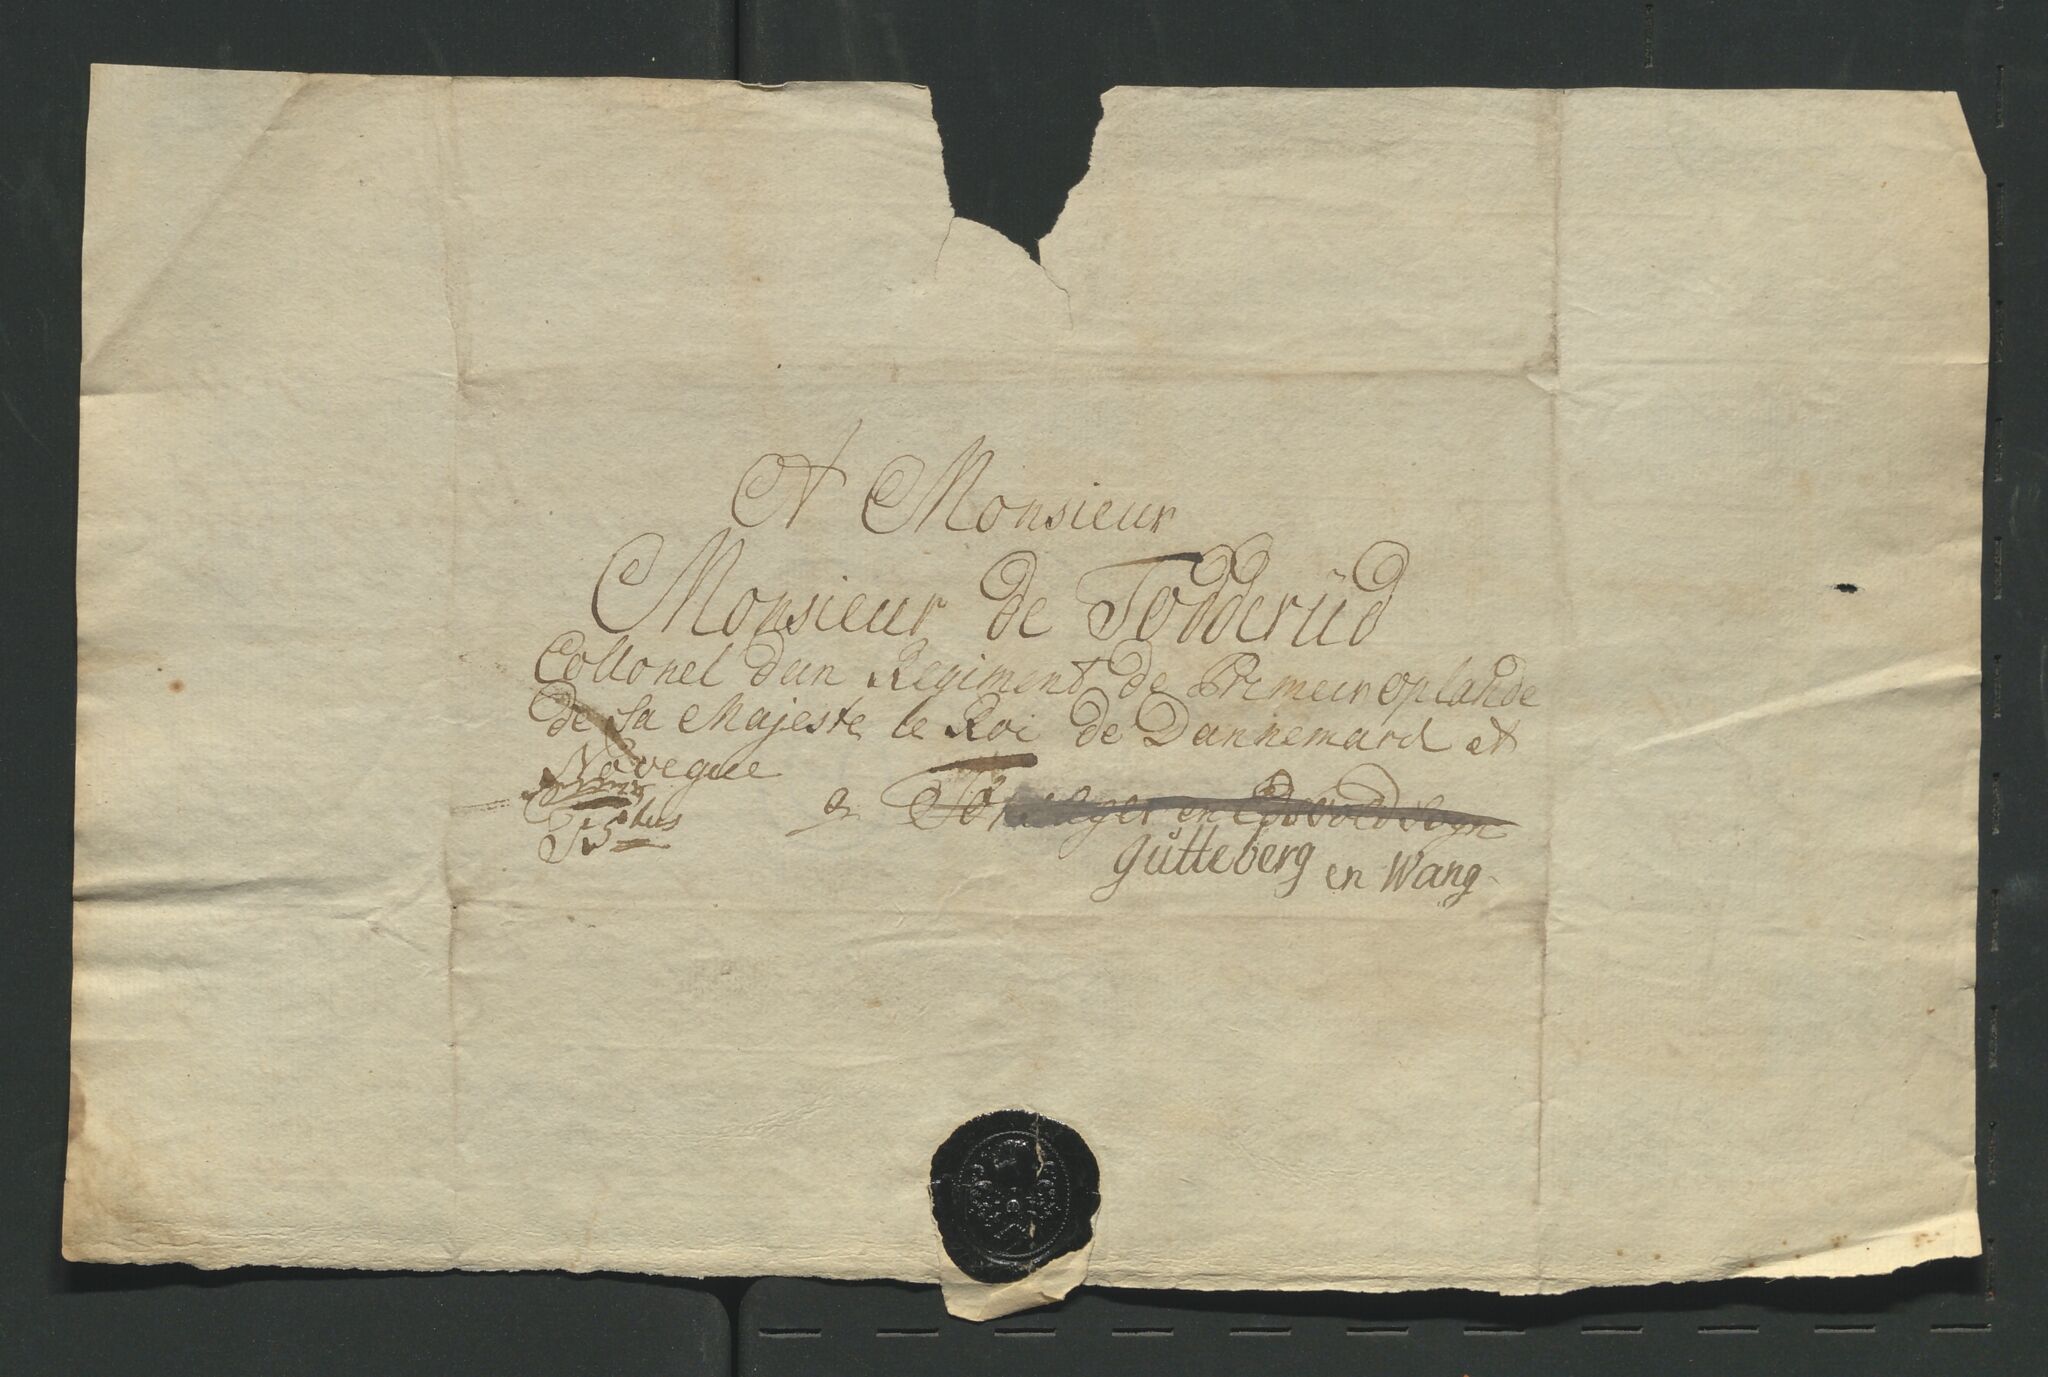 A Monsieur
Monsieur de Todderüd
Collonel dun Regiment de Primeur oplande
de Sa Majeste le Roi de Dannemarck et
Novegue
a en
gütteberg en Wang